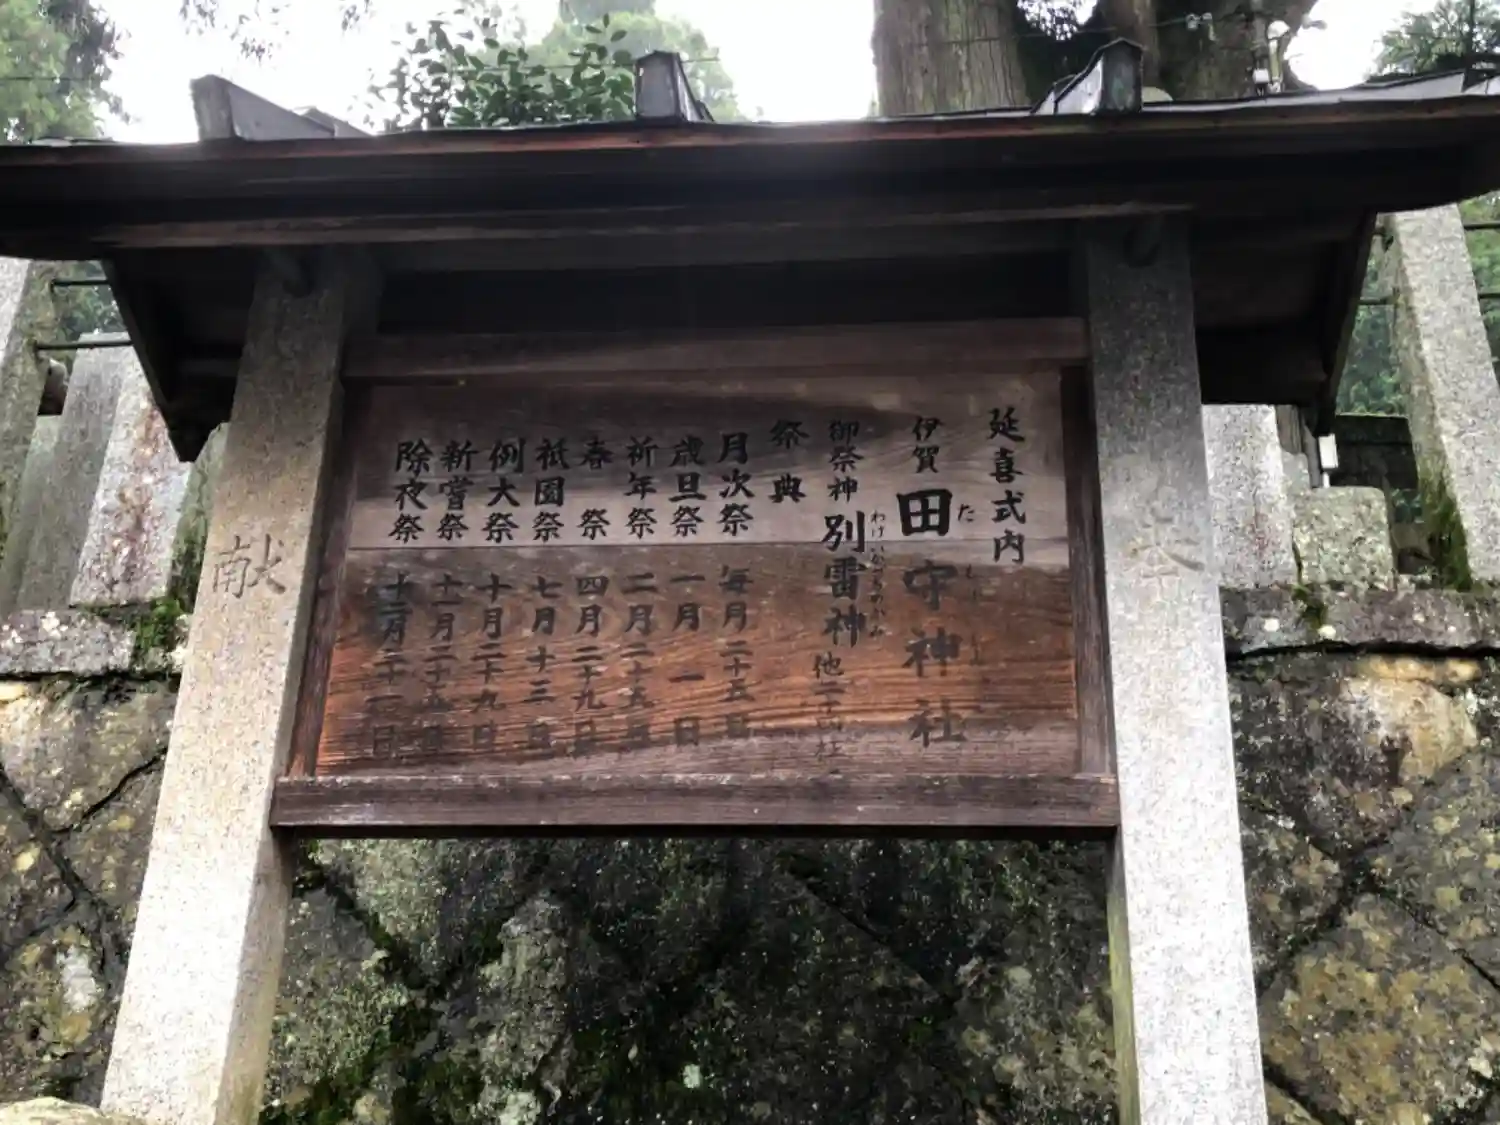 延喜式内
伊賀 田守神社
た
御祭神 別雷神 他
わけいかづちのかみ
祭典
月次祭 毎月二十五日
歳旦祭 一月一日
祈年祭 二月二十五日
春祭 四月二十九日
祇園祭 七月十三日
例大祭 十月二十九日
新嘗祭 十一月二十五日
除夜祭 十二月三十一日
奉
献